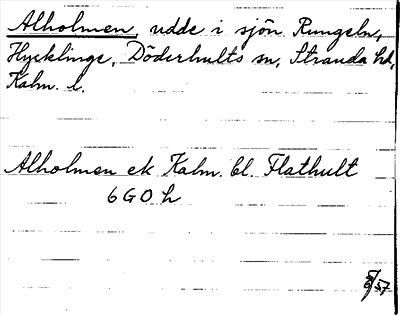 Alholmen, udde i sjön Rungeln,
Hycklinge, Döderhults sn, Stranda hd,
Kalm. l.
Alholmen ek Kalm. bl. Flathult
6 G O h